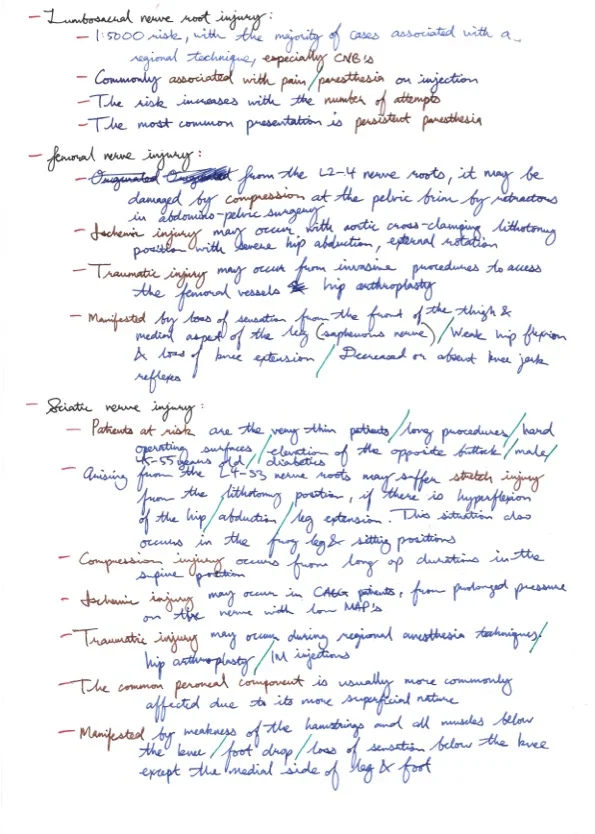 - Lumbosacral nerve root injury:
- 1:5000 risk, with the majority of cases associated with a
regional technique, especially CNB's
- Commonly associated with pain/paresthesia on injection
- The risk increases with the number of attempts
- The most common presentation is persistent paresthesia
- Femoral nerve injury:
- from the L2-4 nerve roots, it may be
damaged by compression at the pelvic brim by retractors
in abdomino-pelvic surgery
- Ischemic injury may occur with aortic cross-clamping, lithotomy
position with severe hip abduction, external rotation
- Traumatic injury may occur from invasive procedures to access
the femoral vessels & hip arthroplasty
- Manifested by loss of sensation from the front of the thigh &
medial aspect of the leg (saphenous nerve)/Weak hip flexion
& loss of knee extension / Decreased or absent knee jerk
reflexes
- Sciatic nerve injury:
- Patients at risk are the very thin patients/long procedures/hard
operating surfaces/elevation of the opposite buttock/male/
45-55 years old/diabetics
- Arising from the L4-S3 nerve roots may suffer stretch injury
from the lithotomy position, if there is hyperflexion
of the hip/abduction/leg extension. This situation also
occurs in the frog leg & sitting positions
- Compression injury occurs from long op durations in the
supine position
- Ischemic injury may occur in CABG patients, from prolonged pressure
on the nerve with low MAP's
- Traumatic injury may occur during regional anesthesia techniques/
hip arthroplasty/IM injections
- The common peroneal component is usually more commonly
affected due to its more superficial nature
- Manifested by weakness of the hamstrings and all muscles below
the knee/foot drop/loss of sensation below the knee
except the medial side of leg & foot